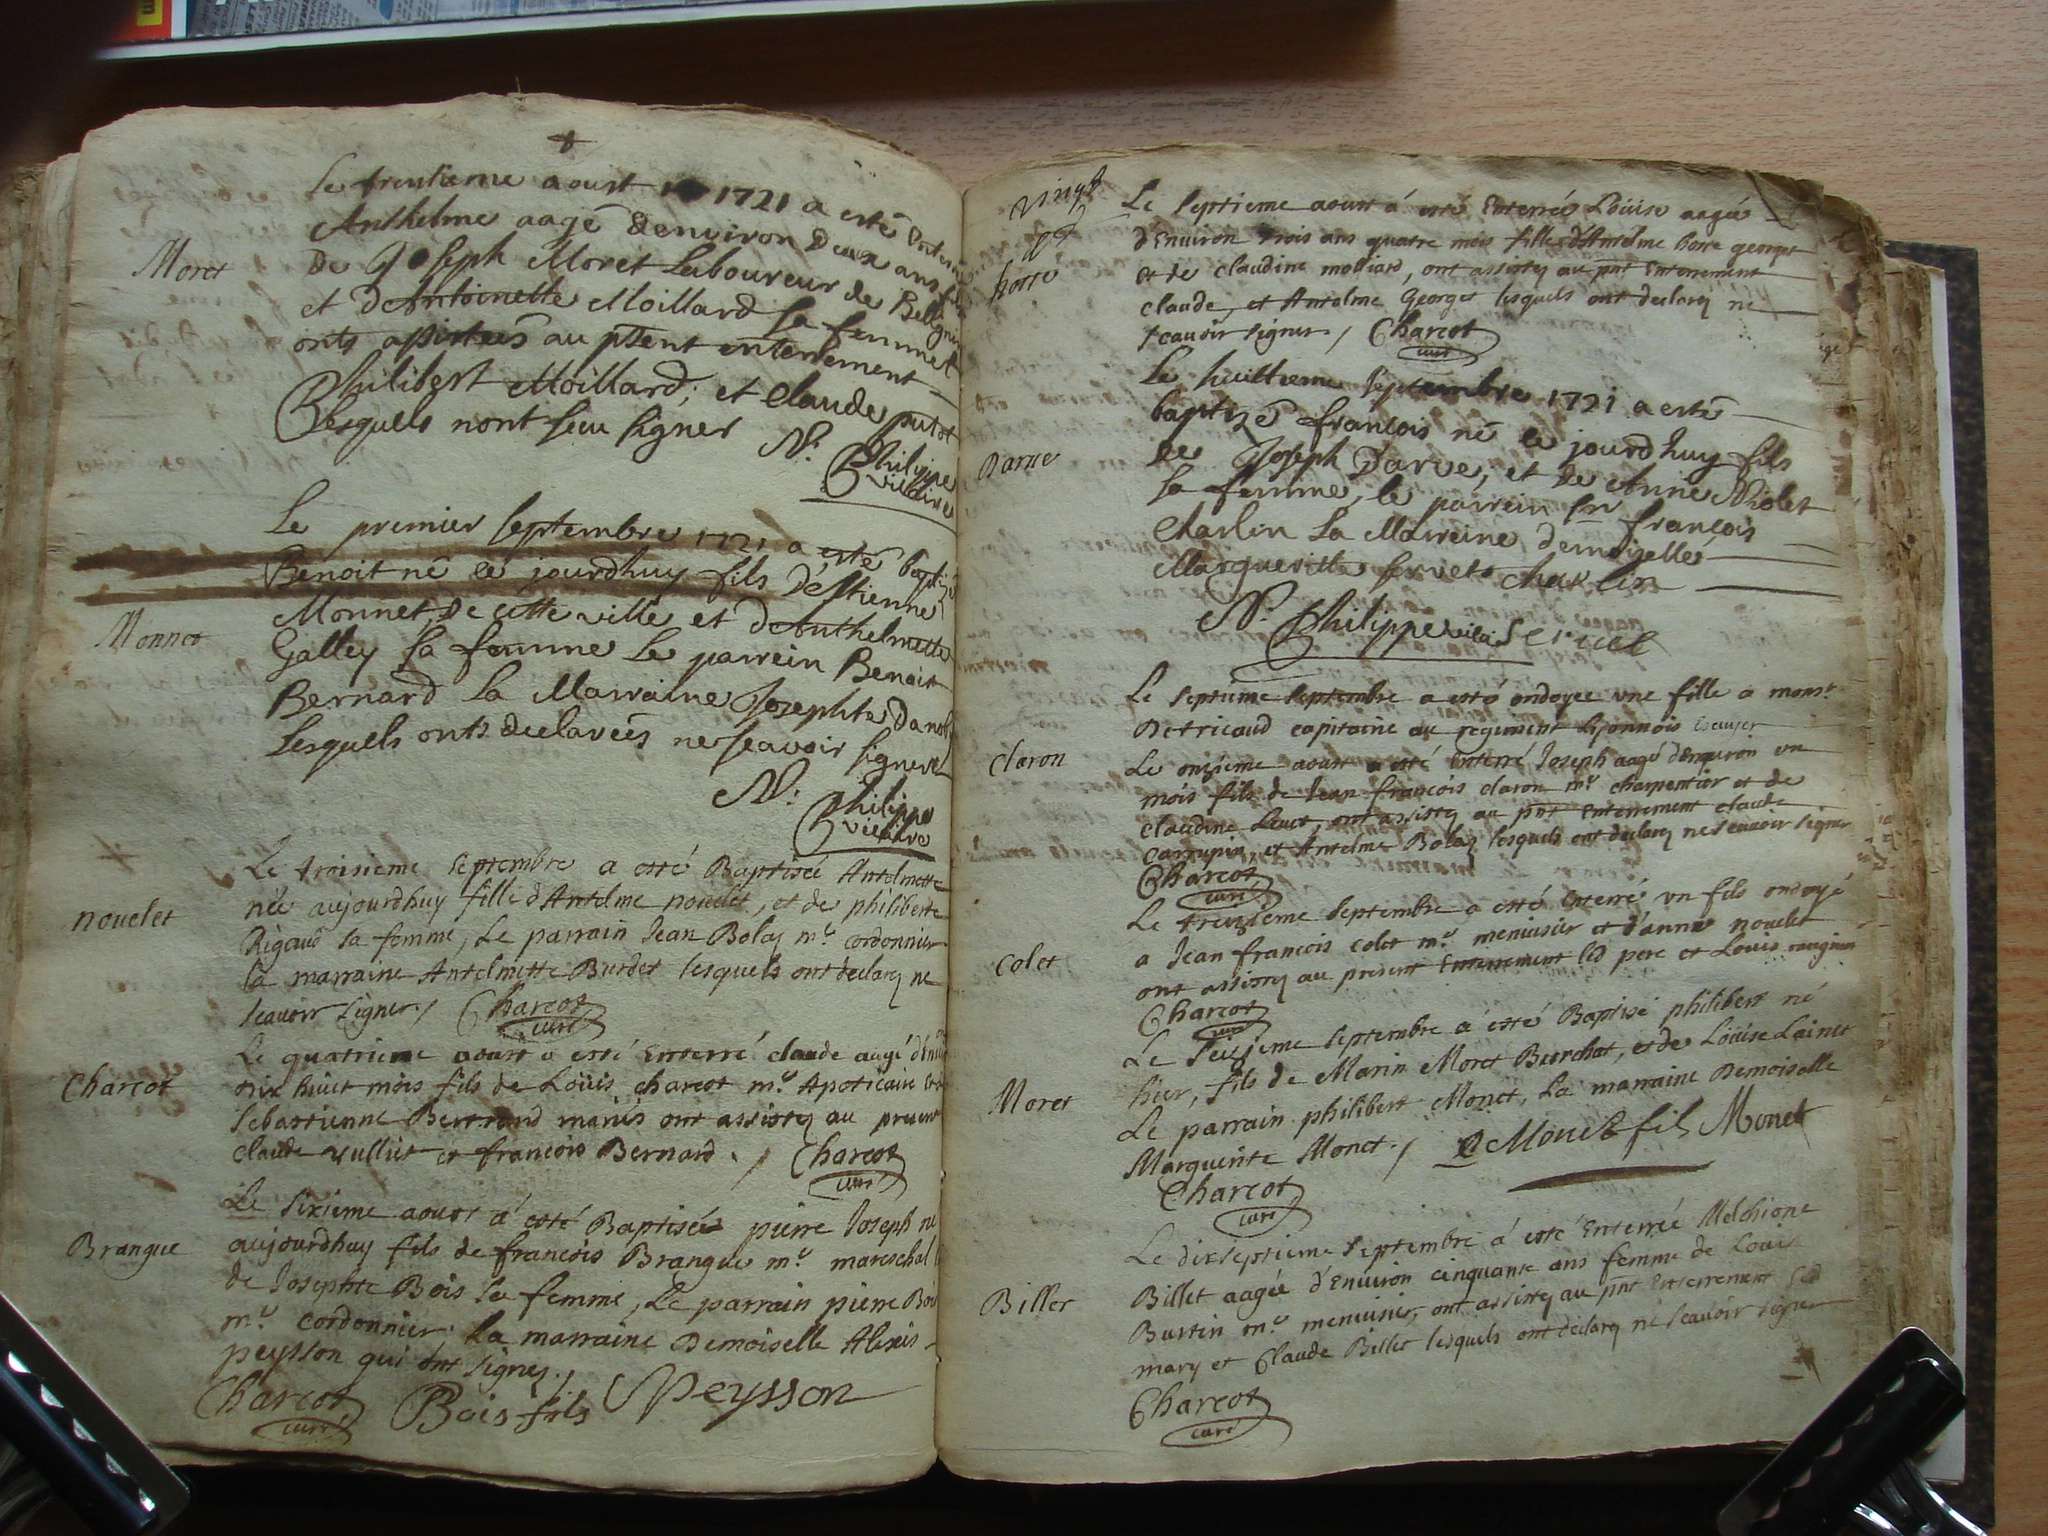 Le trentieme aoust 1721 a esté
Anthelme aagé denviron deux ans fils
Moret
de Joseph Moret Laboureur de
et dAntoinette Moillard sa femme
onts assistees au pñent enterrement
Philibert Moillard, et Claude putot
Lesquels nont sceu signer
N. Philippe
vicaire
Le premier septembre 1721 a esté baptizé
Benoit né ce jourdhuy fils d'Estienne
Monnet
Monnet, de cette ville et dAnthelmette
Galley sa femme Le parrein Benoit
Bernard La Marraine Josephte
Lesquels onts declareés ne sçavoir signer
N. Philippe
vicaire
Le troisieme septembre a esté Baptiseé Antelmette
nouelet
née aujourdhuy fille d'Antelme nouelet, et de philiberte
Rigaud sa femme, Le parrain Jean Bolaz me cordonnier
la marraine Antelmette Burdet lesquels ont declarez ne
scauoir signer. / Charcot
curé
Le quatrieme aoust a esté Enterré claude aagé
Charcot
dix huict mois fils de Loüis charcot me Apoticaire
sebastienne Bertrand mariés ont assistez au present
claude vulliet et francois Bernard. / Charcot
curé
Le sixieme aoust a esté Baptiseé pierre Joseph né
Brangue
aujourdhuy fils de francois Brangue me mareschal
de Josephte Bois sa femme, Le parrain pierre Bois
me cordonnier la marraine Demoiselle Alexis
peysson qui ont signez. /
Charcot Bois fils Peysson
curé
vingt
Le septieme aoust a esté Enterrée Loüise aagée
d'Enuiron trois ans quatre mois fille d'Antelme Borre georges
borre
et de claudine molliard, ont assistez au pnt Enterrement
claude, et Antelme Georges lesquels ont declarez ne
scauoir signer. / Charcot
curé
Le huittieme septembre 1721 a esté
baptizé françois né ce jourdhuy fils
Darue
de Joseph Darve, et de Anne Niolet
sa femme, le parrein sr françois
Charlin La Marreine demoizelle
Margueritte servet charlin
N. Philippe vicaire servet
Le septieme septembre a esté ondoyee vne fille a monsr
Detricaud capitaine au regiment Lyonnois Escuyer
claron
Le onzieme aoust a esté Enterré Joseph aagé d'Enuiron vn
mois fils de Jean françois claron me charpentier et de
claudine ont assistez au pnt Enterrement claude
carrupin, et Antelme Bolaz lesquels ont declarez ne scauoir signer
Charcot
curé
Le treizieme septembre a esté Enterré vn fils ondoyé
Colet
a Jean francois colet me menuisier et d'anne nouelet
ont assistez au present Enterrement led pere et Louis
Charcot
curé
Le seizieme septembre a esté Baptisé philibert né
Moret
hier, fils de Marin Moret Burchat, et de Loüise Lainet
Le parrain philibert Monet, La marraine Demoiselle
Marguerite Monet. / Monet fils Monet
Charcot
curé
Le dixseptieme septembre a esté Enterrée Melchione
Billet
Billet aagée d'Enuiron cinquante ans femme de Louis
Burtin me menuisier, ont assistez au pnt Enterrement led
mary et Claude Billet lesquels ont declarez ne scauoir signer
Charcot
curé